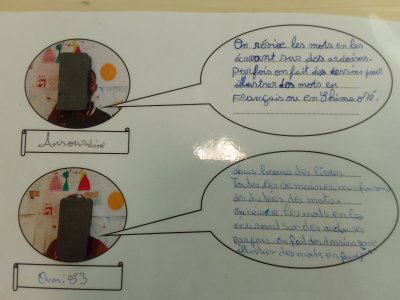 On révise les mots en les
écrivant sur des ardoises.
Parfois on fait des dessins pour
illustrer des mots en
Français ou en Shimaoré.
Ansourdine
nous lisons des livres.
Toutes les semaines nous faisons
des dictées des mots.
On révise les mots en les
écrivant sur des ardoises
parfois on fait des dessins pour
illustrer des mots en